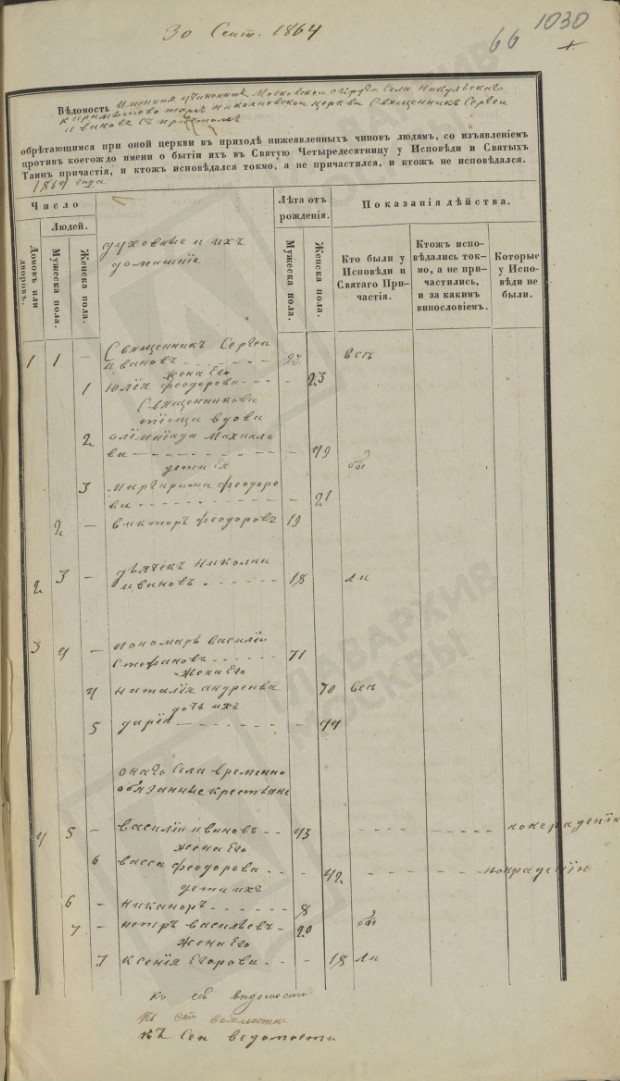 30 Сент. 1864
1030
66
Вѣдомость Московской округи села Никульскаго
Николаевской церкви Священникъ Сергеи
Ивановъ съ причтомъ
обрѣтающимся при оной церкви въ приходѣ нижеявленныхъ чиновъ людямъ, со изъявленіемъ
противъ коегождо имени о бытіи ихъ въ Святую Четыредесятницу у Исповѣди и Святыхъ
Таинъ причастія, и ктожъ исповѣдался токмо, а не причастился, и ктожъ не исповѣдался.
1864 года
Число
Лѣта отъ рожденія.
Показанія дѣйства.
Людей.
Домовъ или дворовъ.
Мужеска пола.
Женска пола.
духовные и ихъ
домашніе
Мужеска пола.
Женска пола.
Кто были у Исповѣди и Святаго Причастія.
Ктожъ исповѣдались токмо, а не причастились, и за какимъ винословіемъ.
Которые у Исповѣди не были.
Священникъ Сергеи
1 1 - Ивановъ вси
жена Его
1 Юлія Феодорова 23
Священникова
теща вдова
2 Олимпіада Михаило
ва 49
дети Ея
3 Маргарита Феодоро
ва 21
2 - Викторъ Феодоровъ 19
2 3 - дьячекъ Николаи
Ивановъ 18 ли
3 4 - пономарь Василіи
Стефановъ 71
жена Его
4 Наталія Андреева 70 вси
дочь ихъ
5 Дарія 44
онаго Села временно
обязанные крестьяне
4 5 - Василіи Ивановъ 43 понерадению
жена Его
6 Васса Феодорова 42 понерадению
дети ихъ
6 - Никаноръ 8
7 - Петръ Васильевъ 20 бы
жена Его
7 Ксенія Егорова 18 ли
ко сей ведомости
къ сей ведомости
къ Сеи ведомости